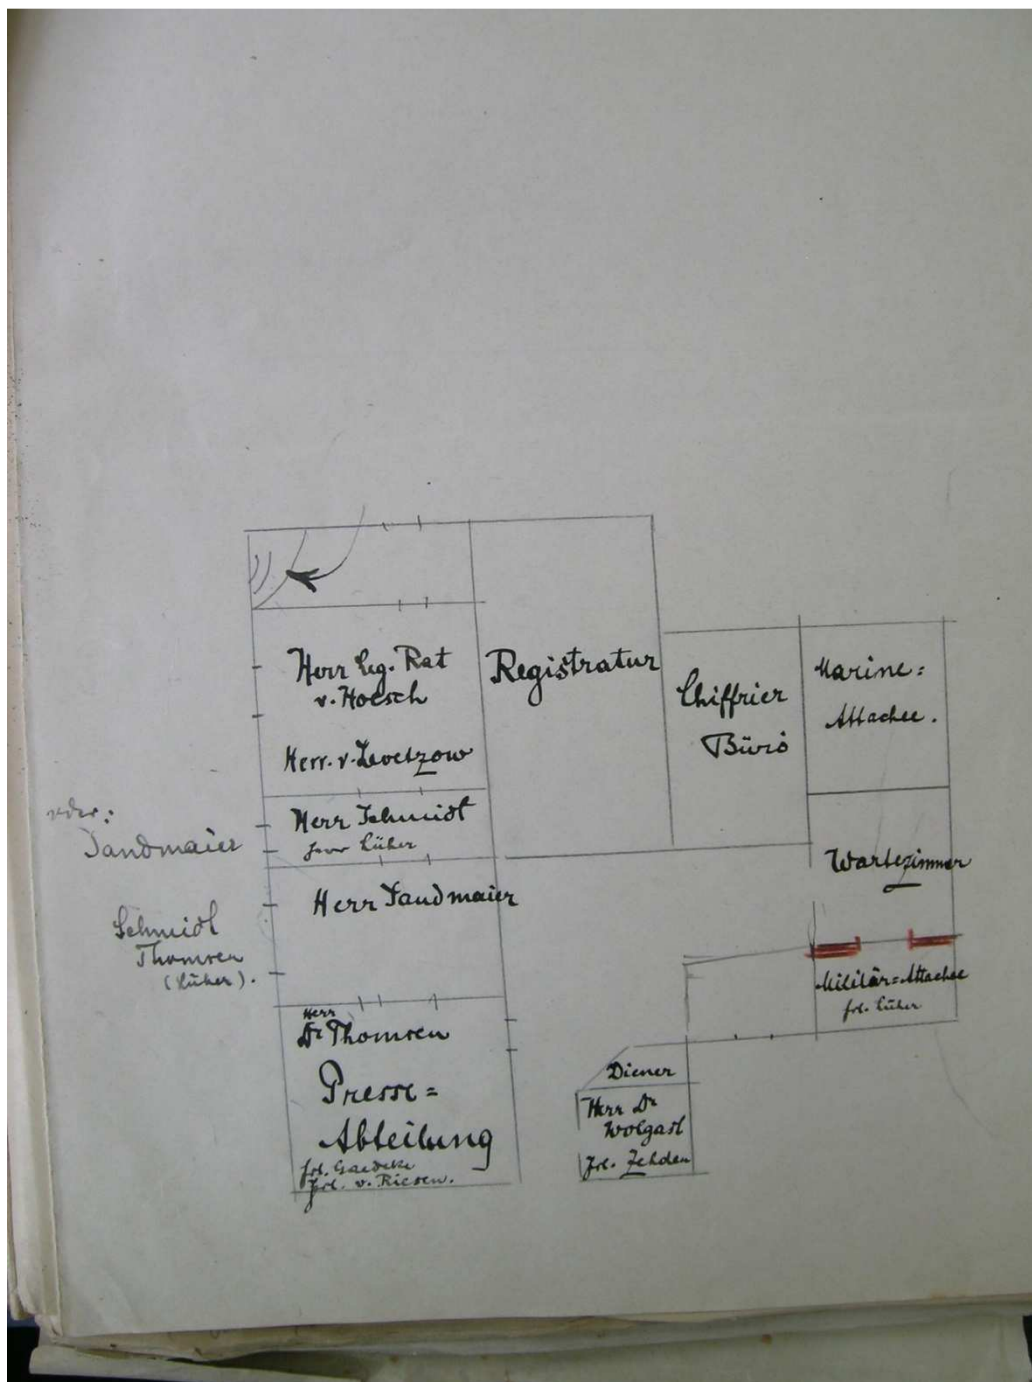 Herr Leg. Rat
v. Hoesch
Herr. v. Levetzow
Registratur
Chiffrier
Büro
Marine=
Attachee.
Herr Schmidt
Lüher
oder:
Sandmaier
Herr Sandmaier
Schmidt
Thomsen
(Lüher).
Wartezimmer
Militär=Attachee
frl. Lüher
Herr
Dr Thomsen
Presse=
Abteilung
frl. Gaedeke
Frl. v. Riesen.
Diener
Herr Dr
Wolgast
Frl. Zehden